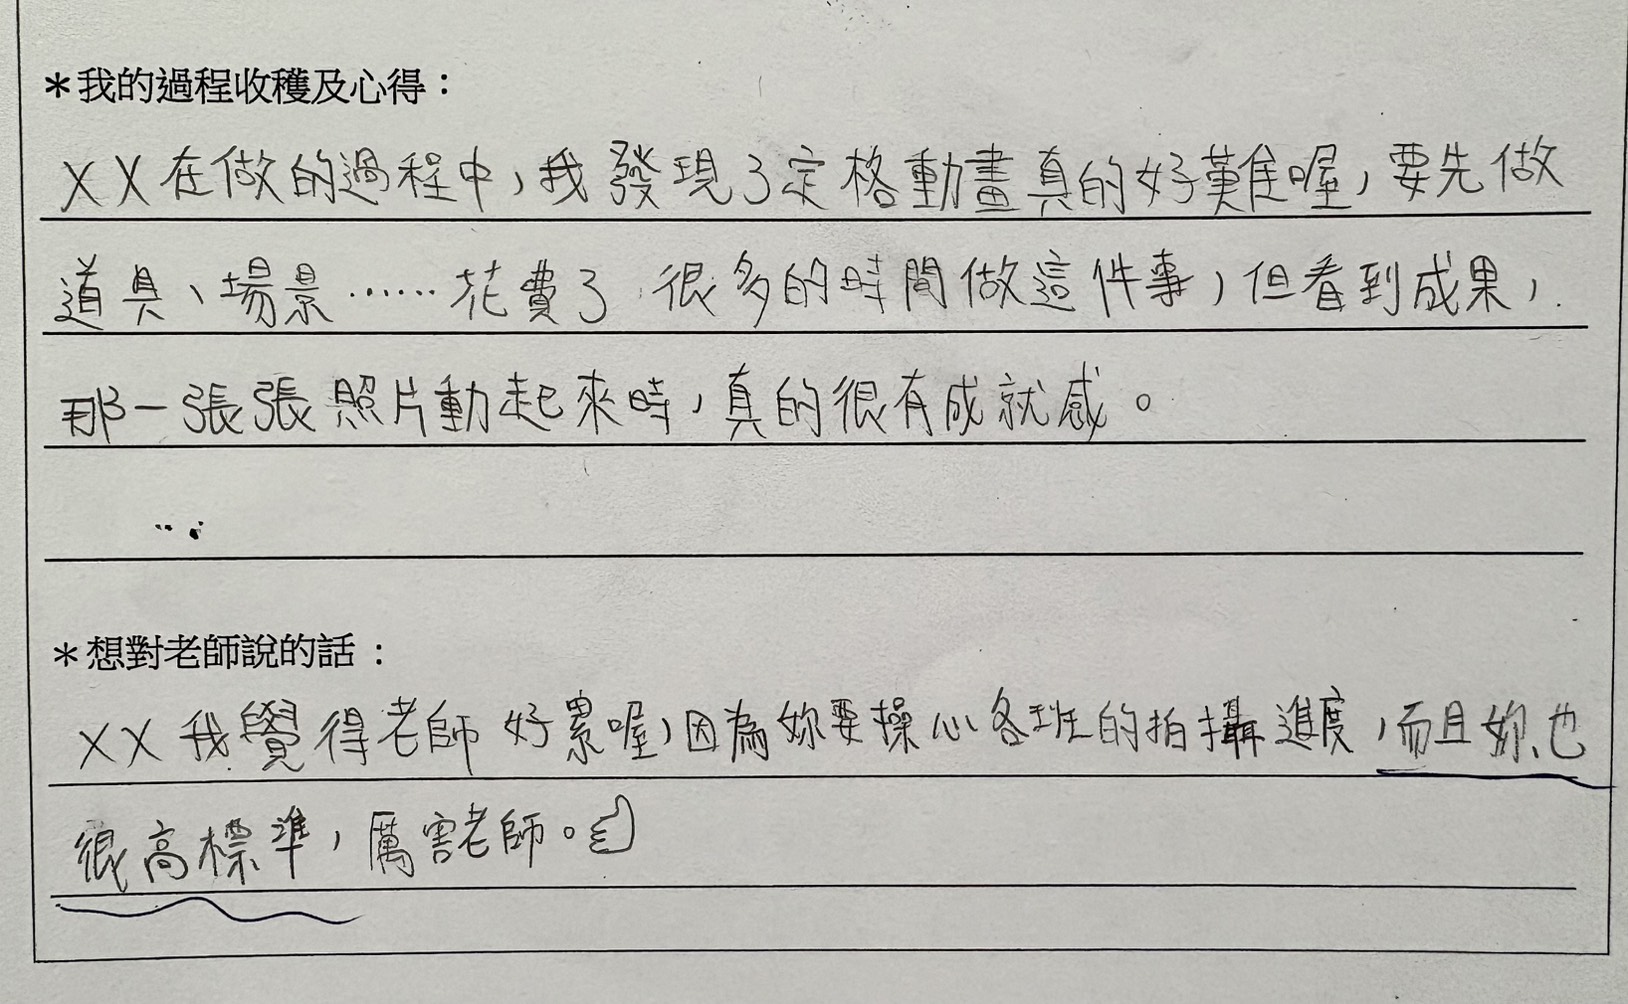 ＊我的過程收穫及心得：
XX在做的過程中，我發現了定格動畫真的好難喔，要先做
道具、場景……花費了很多的時間做這件事，但看到成果，
那一張張照片動起來時，真的很有成就感。
＊想對老師說的話：
XX我覺得老師好累喔，因為妳要操心各班的拍攝進度，而且妳也
很高標準，厲害老師。